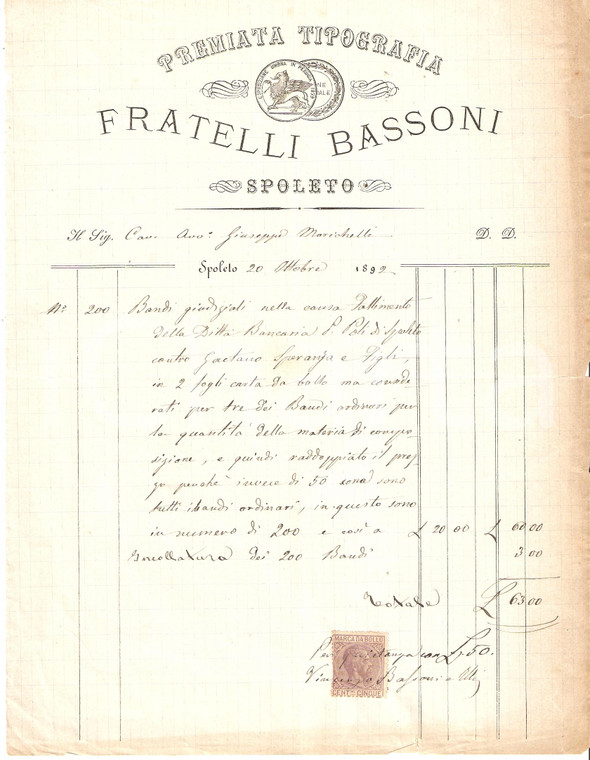 PREMIATA TIPOGRAFIA
FRATELLI BASSONI
SPOLETO
Il Sig. Cav. Avv.º Giuseppe Morichelli D. D.
Spoleto 20 Ottobre 1892
Nº 200 Bandi giudiziali nella causa Fallimento
della Ditta Bancaria P. Poli di Spoleto
contro Gaetano Speranza e Figli,
in 2 fogli carta da bollo ma conside
rati per tre dei Bandi ordinari per
la quantità della materia di compo
sizione, e quindi raddoppiato il prez
zo perchè invece di 50 come sono
tutti i bandi ordinari, in questo sono
in numero di 200 e così a £ 20 00 £ 60.00
Incollatura dei 200 Bandi 3.00
Totale £ 63.00
MARCA DA BOLLO
Per quietanza con £ 50.
CENT.MI CINQUE
Vincenzo Bassoni e